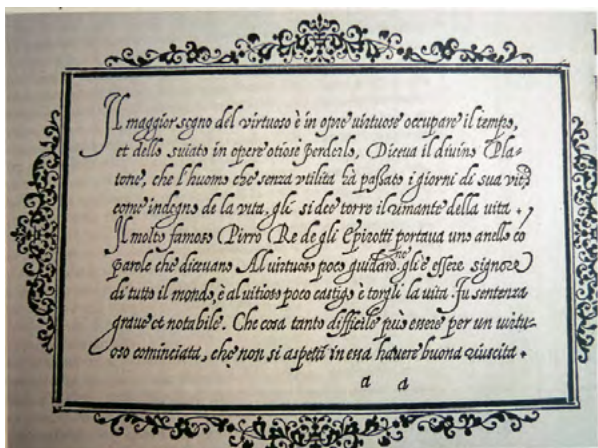 Il maggior segno del virtuoso è in opre uirtuose occupare il tempo,
et dello suiato in opere otiose perderlo, Diceua il diuino Pla-
tone, che l'huomo che senza vtilita hà passato i giorni di sua vita
come indegno de la vita, gli si dee torre il rimanente della vita.
Il molto famoso Pirro Re de gli Epirotti portaua uno anello co
parole che diceuano Al uirtuoso poco guidardone gli è essere signore
di tutto il mondo, è al uitioso poco castigo è torgli la vita. fu sentenza
graue et notabile. Che cosa tanto difficile può essere per un uirtu-
oso cominciata, che non si aspetti in essa hauere buona riuscita.
a a